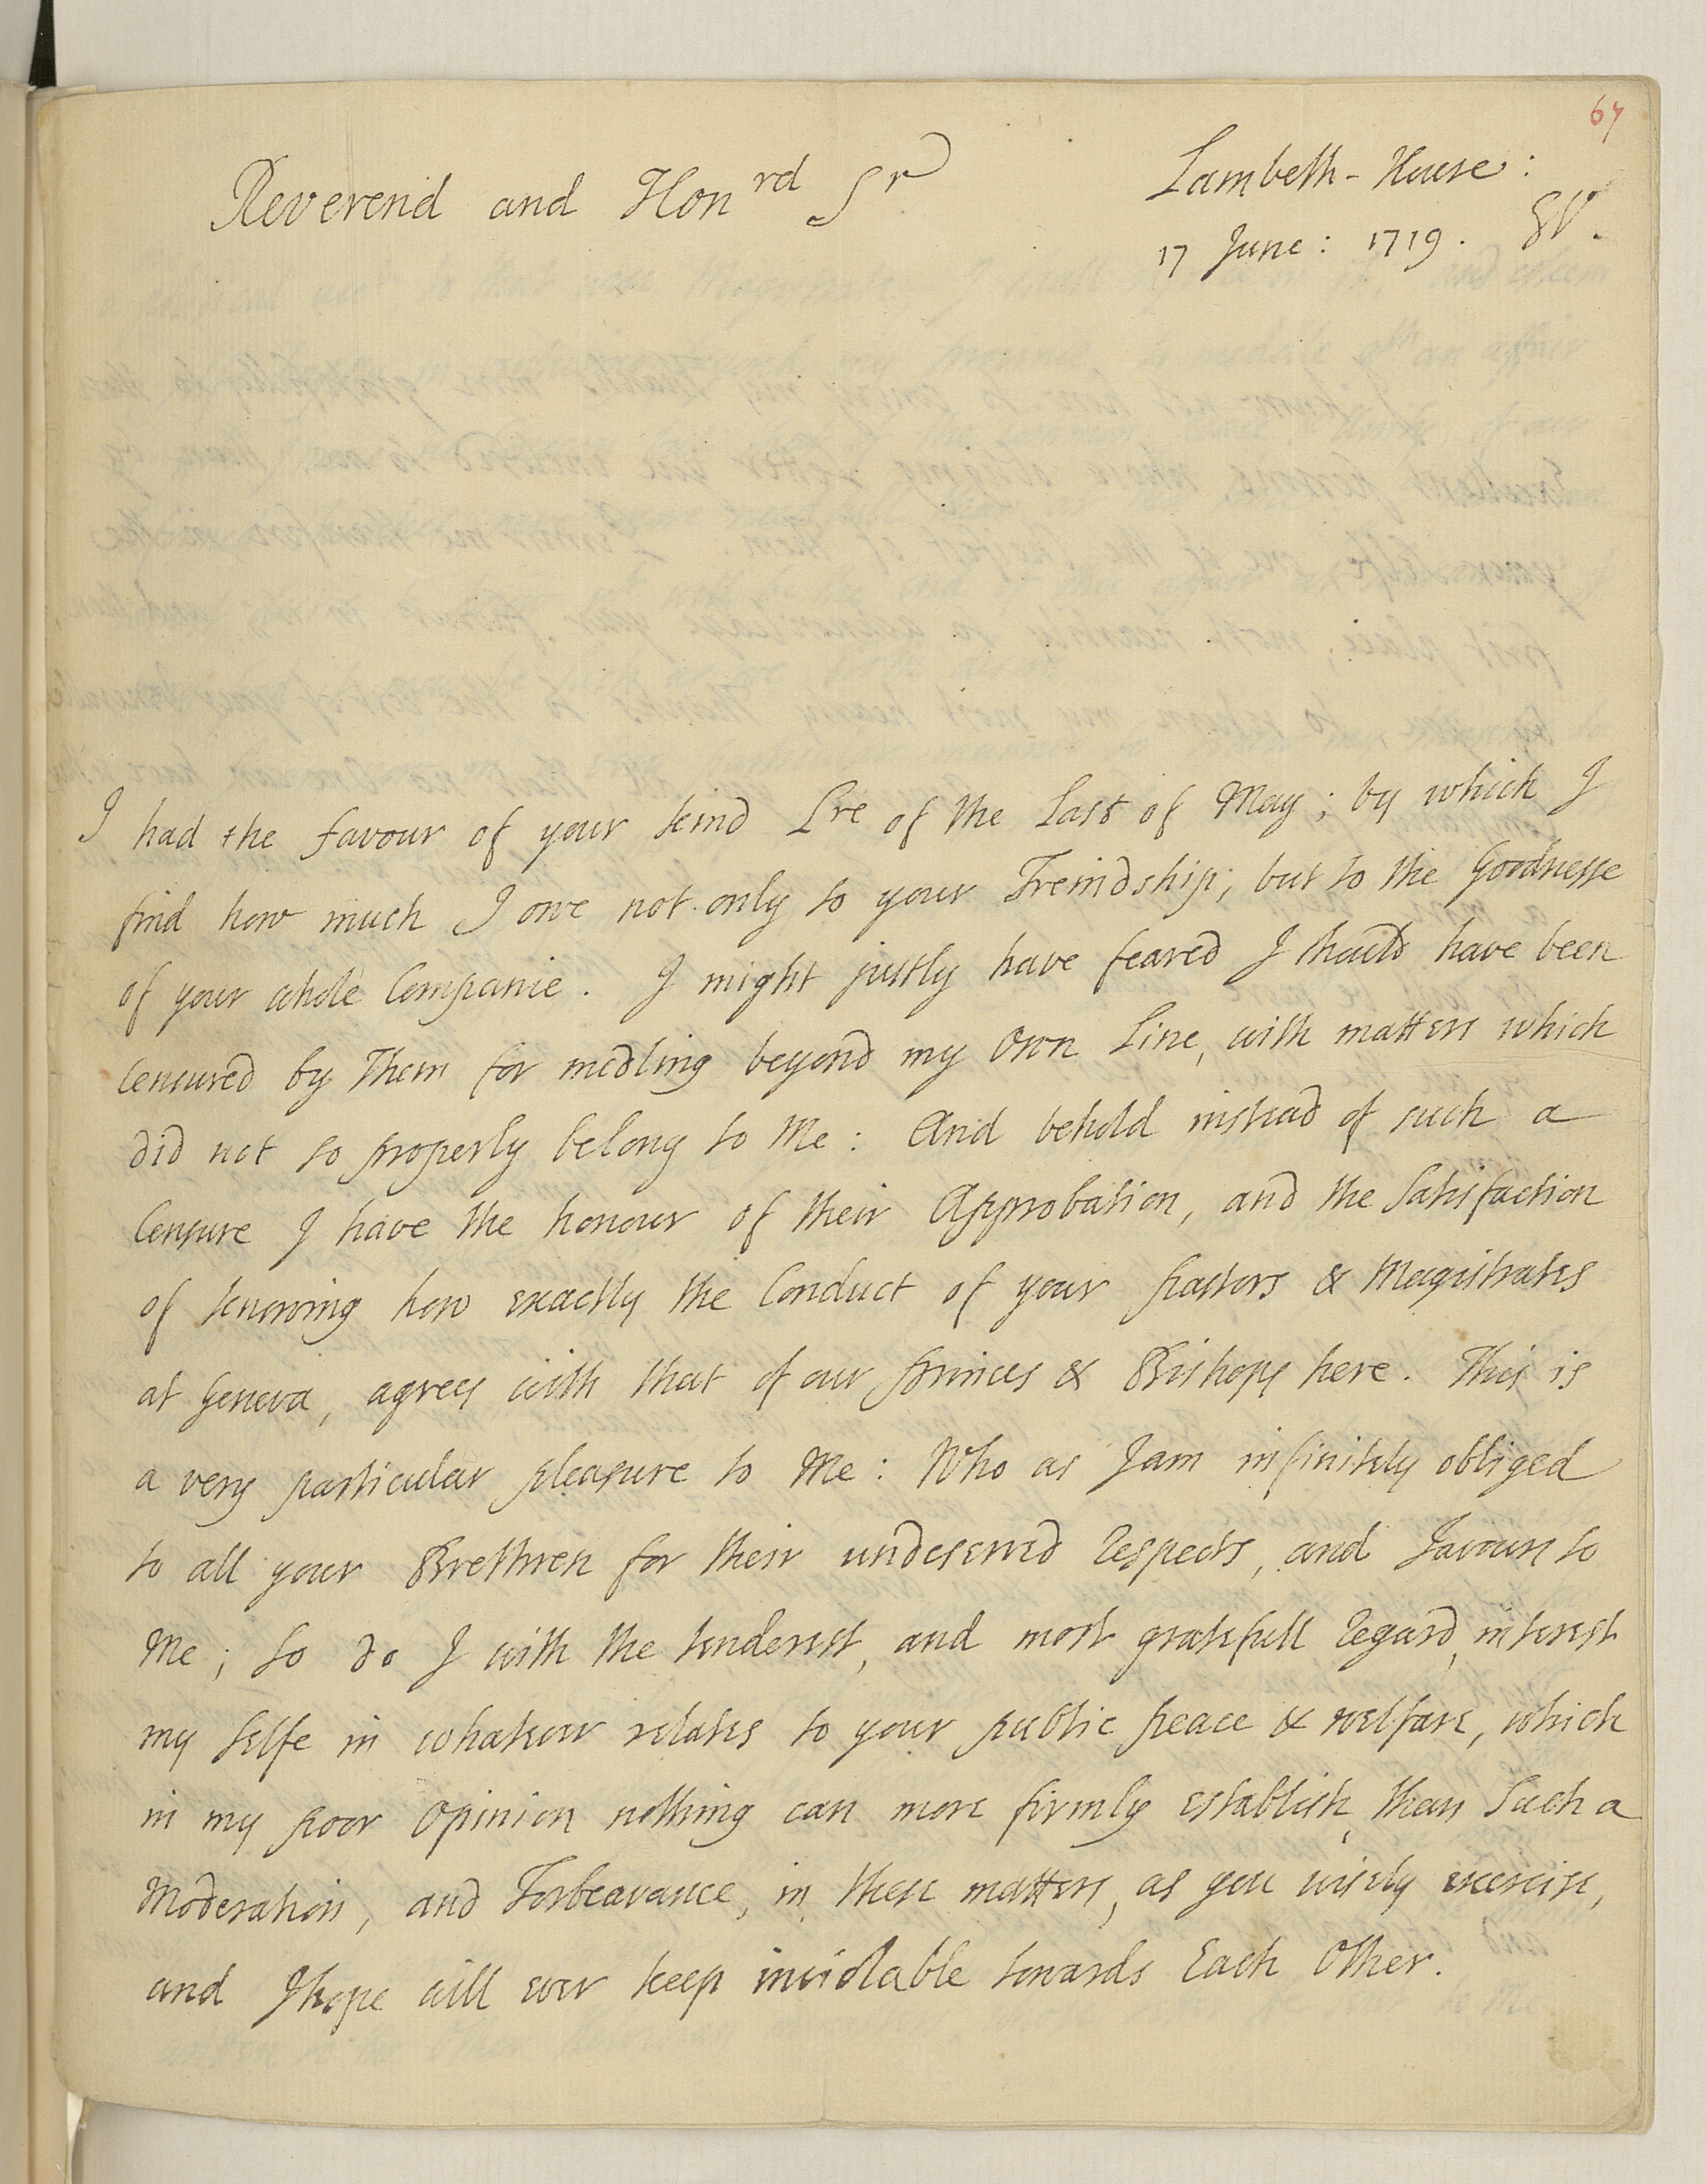 67
Reverend and Honrd Sr
Lambeth-House:
17 June: 1719. SV.
I had the favour of your kind Lre of the last of May; by which I
find how much I owe not only to your Freindship; but to the Goodnesse
of your whole Companie. I might justly have feared I should have been
Censured by Them for medling beyond my Own Line, with matters which
did not so properly belong to Me: And behold instead of such a
Censure I have the honour of their Approbation, and the Satisfaction
of knowing how exactly the Conduct of your Pastors & Magistrates
at Geneva, agrees with that of our Princes & Bishops here. This is
a very particular pleasure to Me: Who as I am infinitely obliged
to all your Brethren for their undeserved Respects, and Favours to
Me; so do I with the tenderest, and most gratefull Regard, interest
my selfe in whatever relates to your public peace & welfare, which
in my poor Opinion nothing can more firmly establish, than Such a
Moderation, and Forbearance, in these matters, as you wisely exercise,
and I hope will ever keep inviolable towards Each Other.